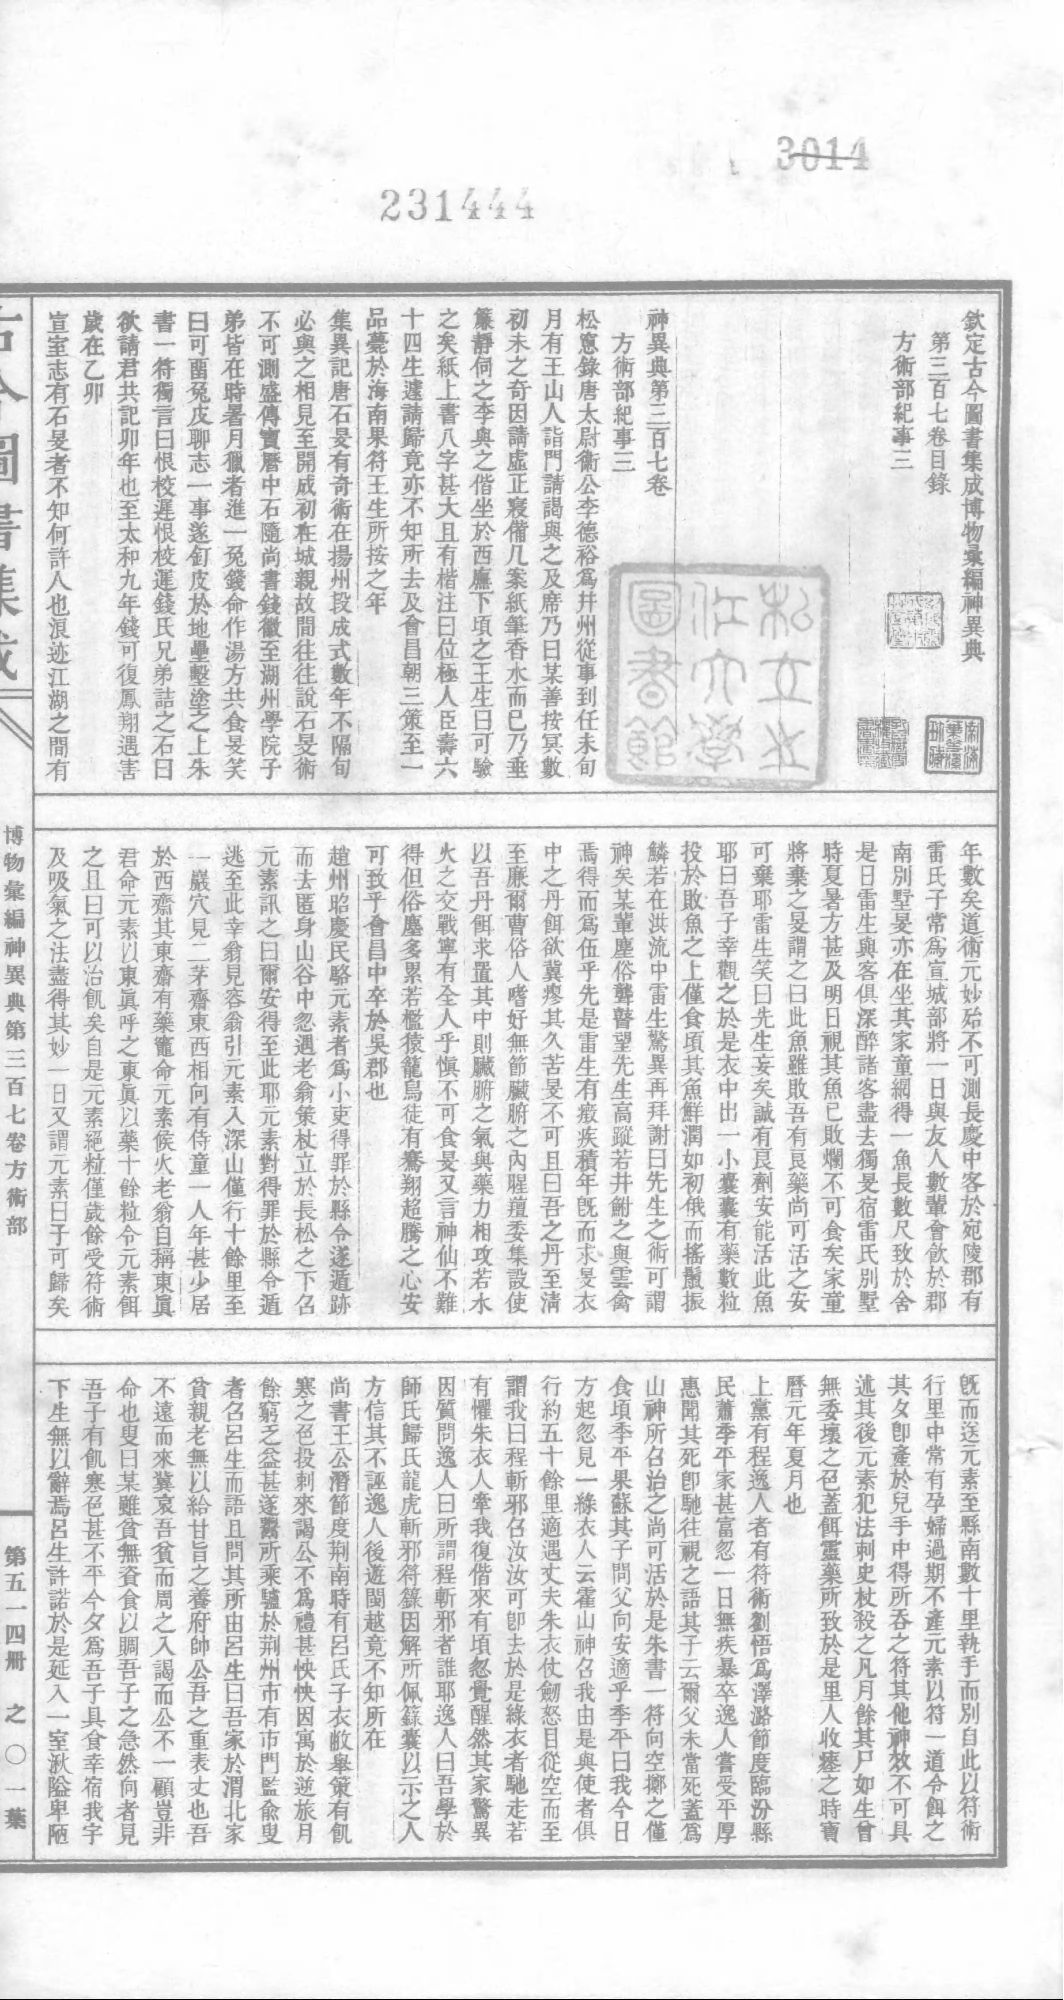 3014
231444
欽定古今圖書集成博物彙編神異典
第三百七卷目錄
方術部紀事三
神異典第三百七卷
方術部紀事三
松窻錄唐太尉衞公李德裕爲幷州從事到任未旬
月有王山人詣門請謁與之及席乃曰某善按冥數
初未之奇因請虛正寢備几案紙筆香水而已乃垂
簾靜伺之李與之偕坐於西廡下頃之王生曰可驗
之矣紙上書八字甚大且有楷注曰位極人臣壽六
十四生遽請歸竟亦不知所去及會昌朝三策至一
品薨於海南果符王生所按之年
集異記唐石旻有奇術在揚州段成式數年不隔旬
必與之相見至開成初在城親故間往往說石旻術
不可測盛傳寶曆中石隨尚書錢徽至湖州學院子
弟皆在時暑月獵者進一兔錢命作湯方共食旻笑
曰可畱兔皮聊志一事遂釘皮於地壘墼塗之上朱
書一符獨言曰恨校遲恨校遲錢氏兄弟詰之石曰
欲請君共記卯年也至太和九年錢可復鳳翔遇害
歲在乙卯
宣室志有石旻者不知何許人也浪迹江湖之間有
年數矣道術元妙殆不可測長慶中客於宛陵郡有
雷氏子常爲宣城部將一日與友人數輩會飮於郡
南別墅旻亦在坐其家童網得一魚長數尺致於舍
是日雷生與客俱深醉諸客盡去獨旻宿雷氏別墅
時夏暑方甚及明日視其魚已敗爛不可食矣家童
將棄之旻謂之曰此魚雖敗吾有良藥尚可活之安
可棄耶雷生笑曰先生妄矣誠有良劑安能活此魚
耶曰吾子幸觀之於是衣中出一小囊囊有藥數粒
投於敗魚之上僅食頃其魚鮮潤如初俄而搖鬣振
鱗若在洪流中雷生驚異再拜謝曰先生之術可謂
神矣某輩塵俗聾瞽望先生高蹤若井鮒之與雲禽
焉得而爲伍乎先是雷生有痼疾積年旣而求旻衣
中之丹餌欲冀瘳其久苦旻不可且曰吾之丹至淸
至廉爾曹俗人嗜好無節臟腑之內腥羶委集設使
以吾丹餌求置其中則臟腑之氣與藥力相攻若水
火之交戰寧有全人乎愼不可食旻又言神仙不難
得但俗塵多累若檻猿籠鳥徒有騫翔超騰之心安
可致乎會昌中卒於吳郡也
趙州昭慶民駱元素者爲小吏得罪於縣令遂遁跡
而去匿身山谷中忽遇老翁策杖立於長松之下召
元素訊之曰爾安得至此耶元素對得罪於縣令遁
逃至此幸翁見容翁引元素入深山僅行十餘里至
一巖穴見二茅齋東西相向有侍童一人年甚少居
於西齋其東齋有藥竈命元素候火老翁自稱東眞
君命元素以東眞呼之東眞以藥十餘粒令元素餌
之且曰可以治飢矣自是元素絕粒僅歲餘受符術
及吸氣之法盡得其妙一日又謂元素曰子可歸矣
旣而送元素至縣南數十里執手而別自此以符術
行里中常有孕婦過期不產元素以符一道令餌之
其夕卽產於兒手中得所呑之符其他神效不可具
述其後元素犯法刺史杖殺之凡月餘其尸如生曾
無委壞之色蓋餌靈藥所致於是里人收瘞之時寶
曆元年夏月也
上黨有程逸人者有符術劉悟爲澤潞節度臨汾縣
民蕭季平家甚富忽一日無疾暴卒逸人嘗受平厚
惠聞其死卽馳往視之語其子云爾父未當死蓋爲
山神所召治之尚可活於是朱書一符向空擲之僅
食頃季平果蘇其子問父向安適乎季平曰我今日
方起忽見一綠衣人云霍山神召我由是與使者俱
行約五十餘里適遇丈夫朱衣仗劒怒目從空而至
謂我曰程斬邪召汝汝可卽去於是綠衣者馳走若
有懼朱衣人牽我復偕來有頃忽覺醒然其家驚異
因質問逸人曰所謂程斬邪者誰耶逸人曰吾學於
師氏歸氏龍虎斬邪符籙因解所佩籙囊以示之人
方信其不誣逸人後遊閩越竟不知所在
尚書王公潛節度荆南時有呂氏子衣敝舉策有飢
寒之色投刺來謁公不爲禮甚怏怏因寓於逆旅月
餘窮乏益甚遂鬻所乘驢於荆州市有市門監兪叟
者召呂生而語且問其所由呂生曰吾家於渭北家
貧親老無以給甘旨之養府帥公吾之重表丈也吾
不遠而來冀哀吾貧而周之入謁而公不一顧豈非
命也叟曰某雖貧無資食以賙吾子之急然向者見
吾子有飢寒色甚不平今夕爲吾子具食幸宿我宇
下生無以辭焉呂生許諾於是延入一室湫隘卑陋
古今圖書集成
博物彙編神異典第三百七卷方術部
第五一四册之〇一葉